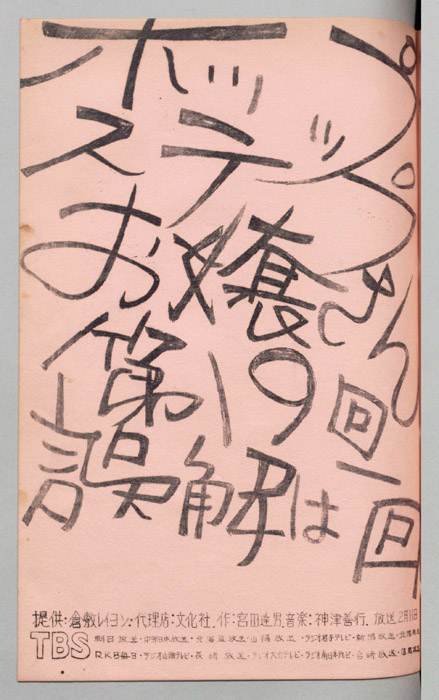 ホップ
ステップ
お嬢さん
第19回
誤解は一回
提供:倉敷レイヨン・代理店:文化社. 作:宮田達男. 音楽:神津善行. 放送2月11日
TBS
朝日放送・中部日本放送・北海道放送・山陽放送・テレビ・新潟放送・
RKB毎日・ラジオ山陰テレビ・長崎放送・ラジオ大分テレビ・テレビ・宮崎放送・